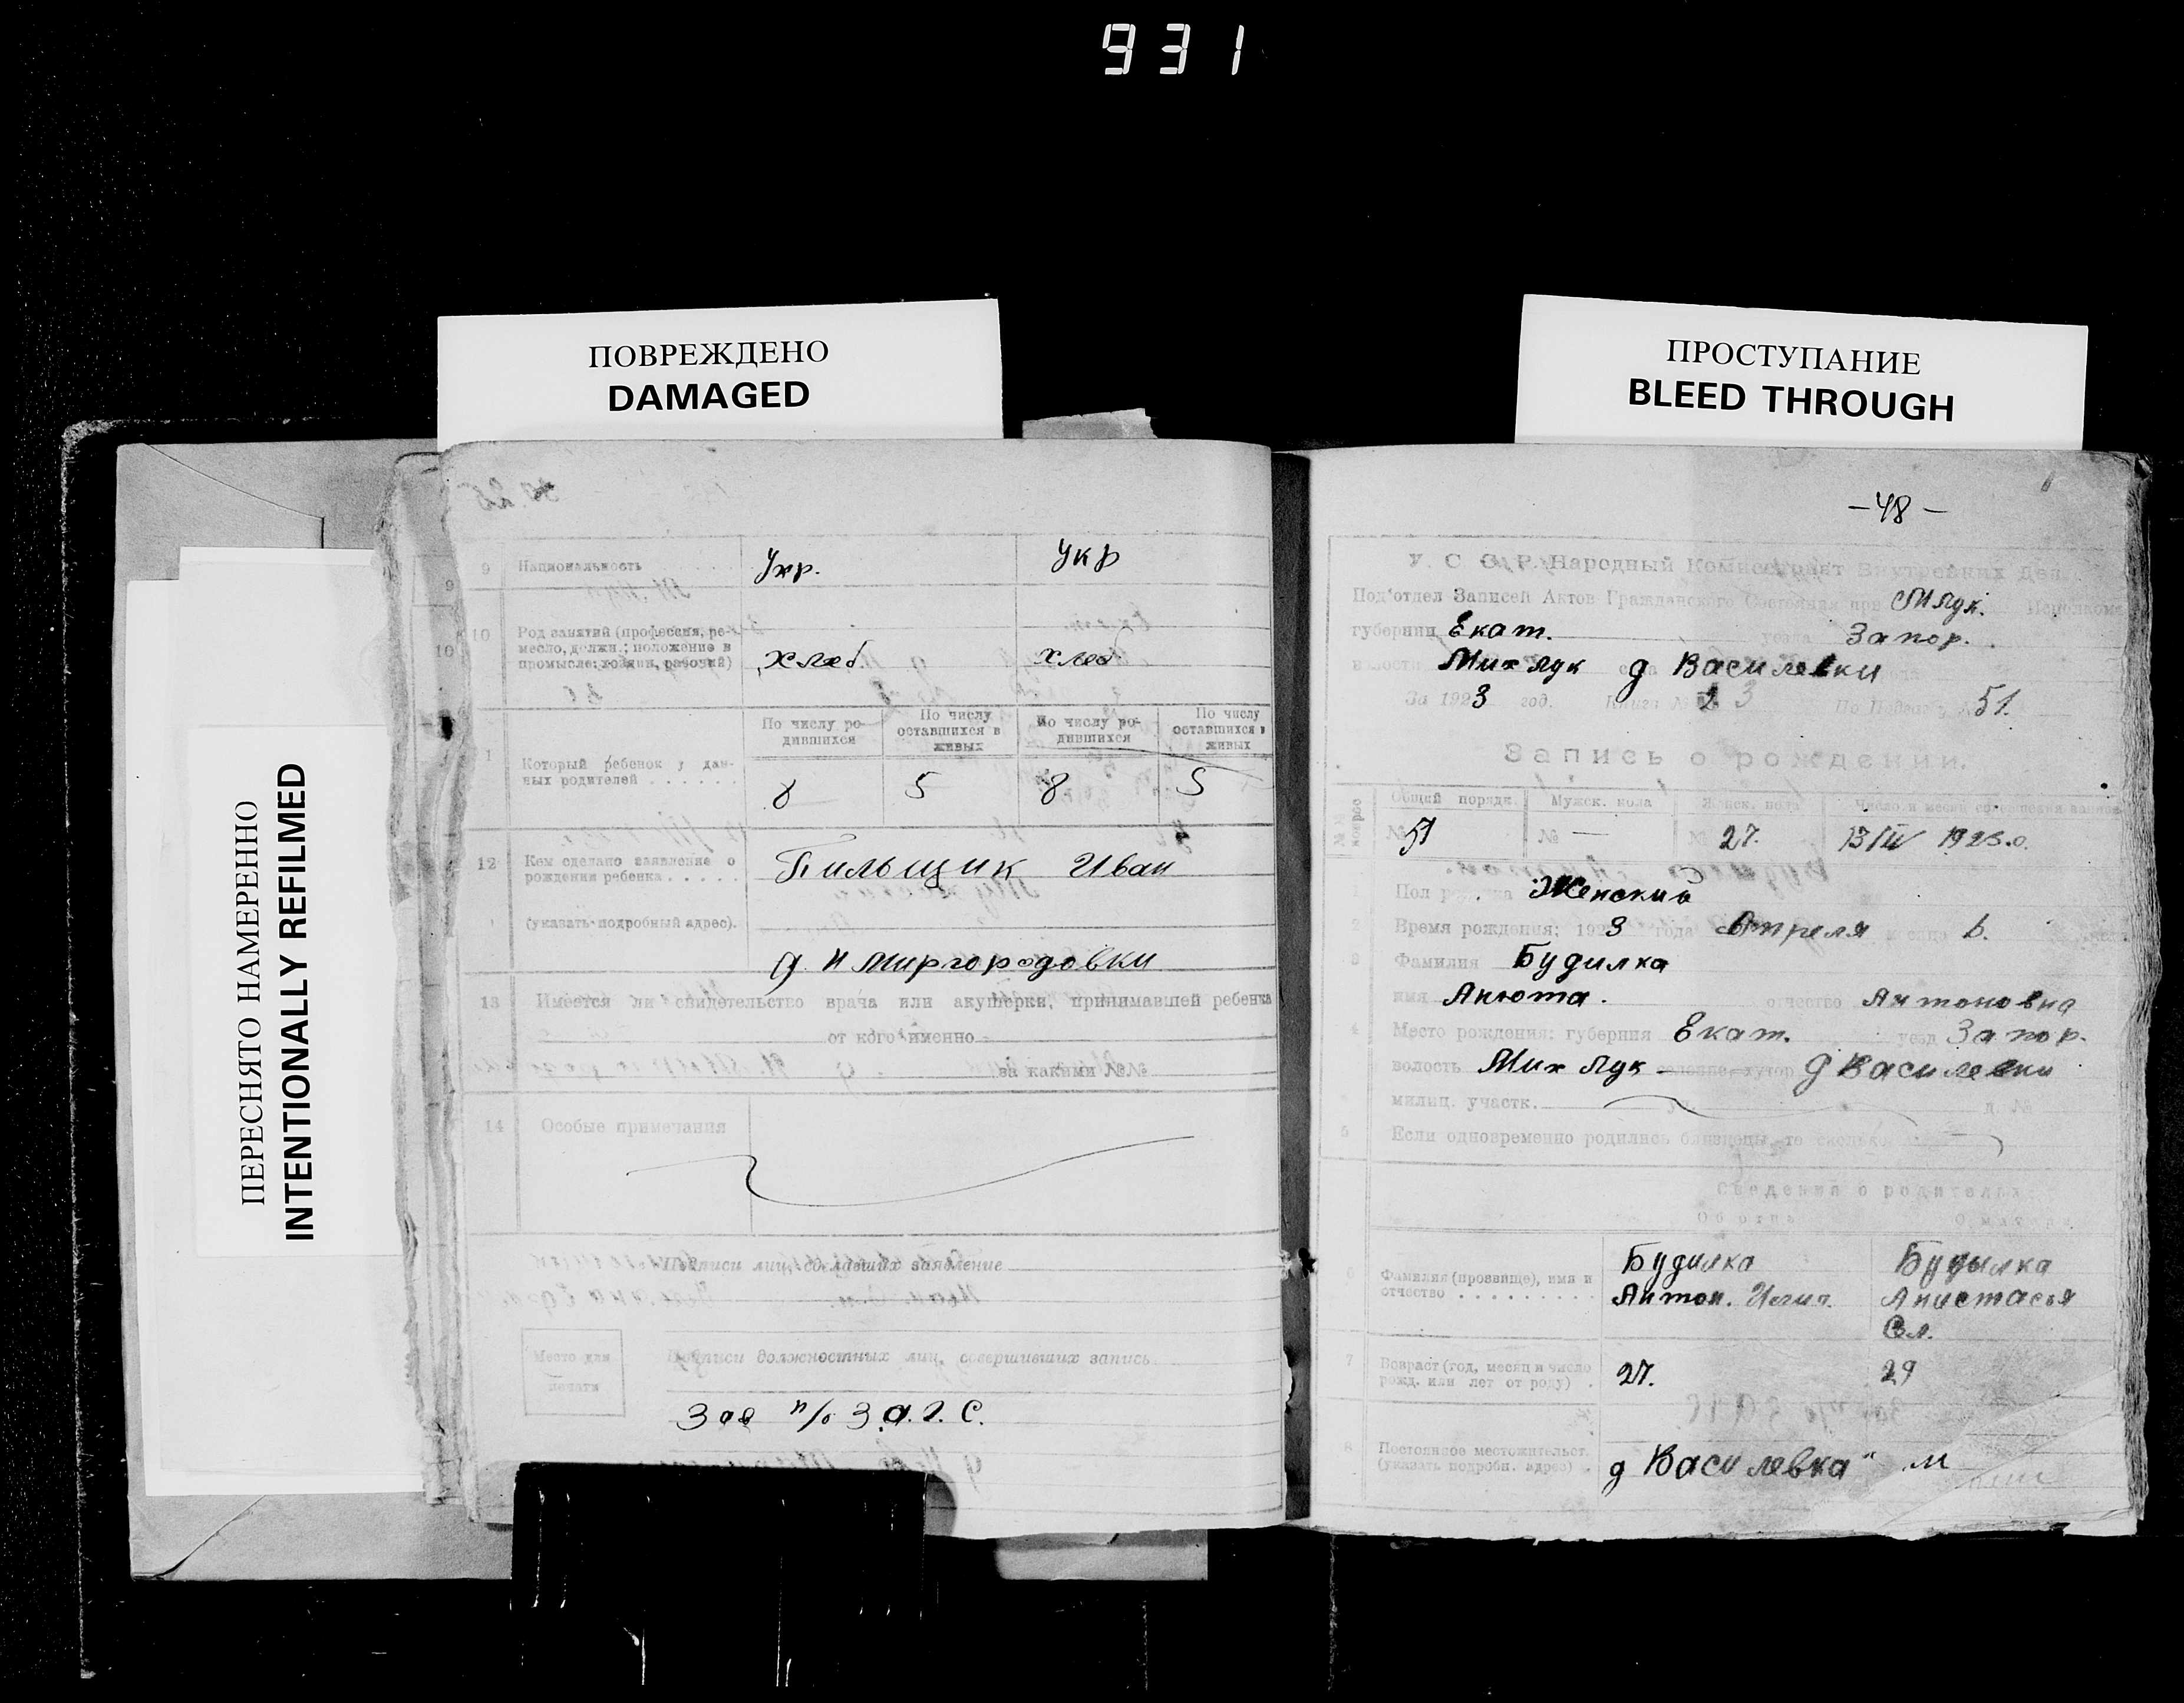 931
ПОВРЕЖДЕНО
DAMAGED
ПРОСТУПАНИЕ
BLEED THROUGH
ПЕРЕСНЯТО НАМЕРЕННО
INTENTIONALLY REFILMED
9 Национальность Укр. Укр
9
10 Род занятий (профессия, ре-
месло, должн.; положение в
промысле: хозяин, рабочий) хлеб. хлеб
10
По числу ро- По числу По числу ро- По числу
дившихся оставшихся в дившихся оставшихся в
живых живых
1 Который ребенок у дан-
ных родителей . . . . . . 8 5 8 5
12 Кем сделано заявление о
рождения ребенка . . . . . Пильщик Иван
(указать подробный адрес).
д. Н Миргородовки
13 Имеется ли свидетельство врача или акушерки, принимавшей ребенка
от кого именно
за какими №№
14 Особые примечания
Подписи лиц, сделавших заявление
Место для
печати
Подписи должностных лиц, совершивших запись
Зав п/о З.а.г.с.
– 48 –
У. С. С. Р. Народный Комиссариат Внутренних Дел
Под'отдел Записей Актов Гражданского Состояния при МЛук. Исполкоме
губернии Екат. уезда Запор.
волости Мих Лук д Василевки
За 1923 год. Книга № 3 51.
Запись о рождении.
Общий порядк. Мужск. пола Женск. пола Число и месяц
№ 51 № — № 27. 13/IV 1923.
Пол ребенка Женский
2 Время рождения: 1923 года Апреля месяца 6.
3 Фамилия Будилка
имя Анюта. отчество Антоновна
4 Место рождения: губерния Екат. уезд Запор.
волость Мих Лук хутор д Василевки
милиц. участк. ул. д. №
5 Если одновременно родились близнецы, то сколько
Сведения о родителях:
Об отце О матери
6 Фамилия (прозвище), имя и
отчество . . . . . . . . .
Будилка Будылка
Антон. Анистасья
7 Возраст (год, месяц и число
рожд. или лет от роду) . 27. 29
8 Постоянное местожительст.
(указать подробн. адрес) . д Василевка